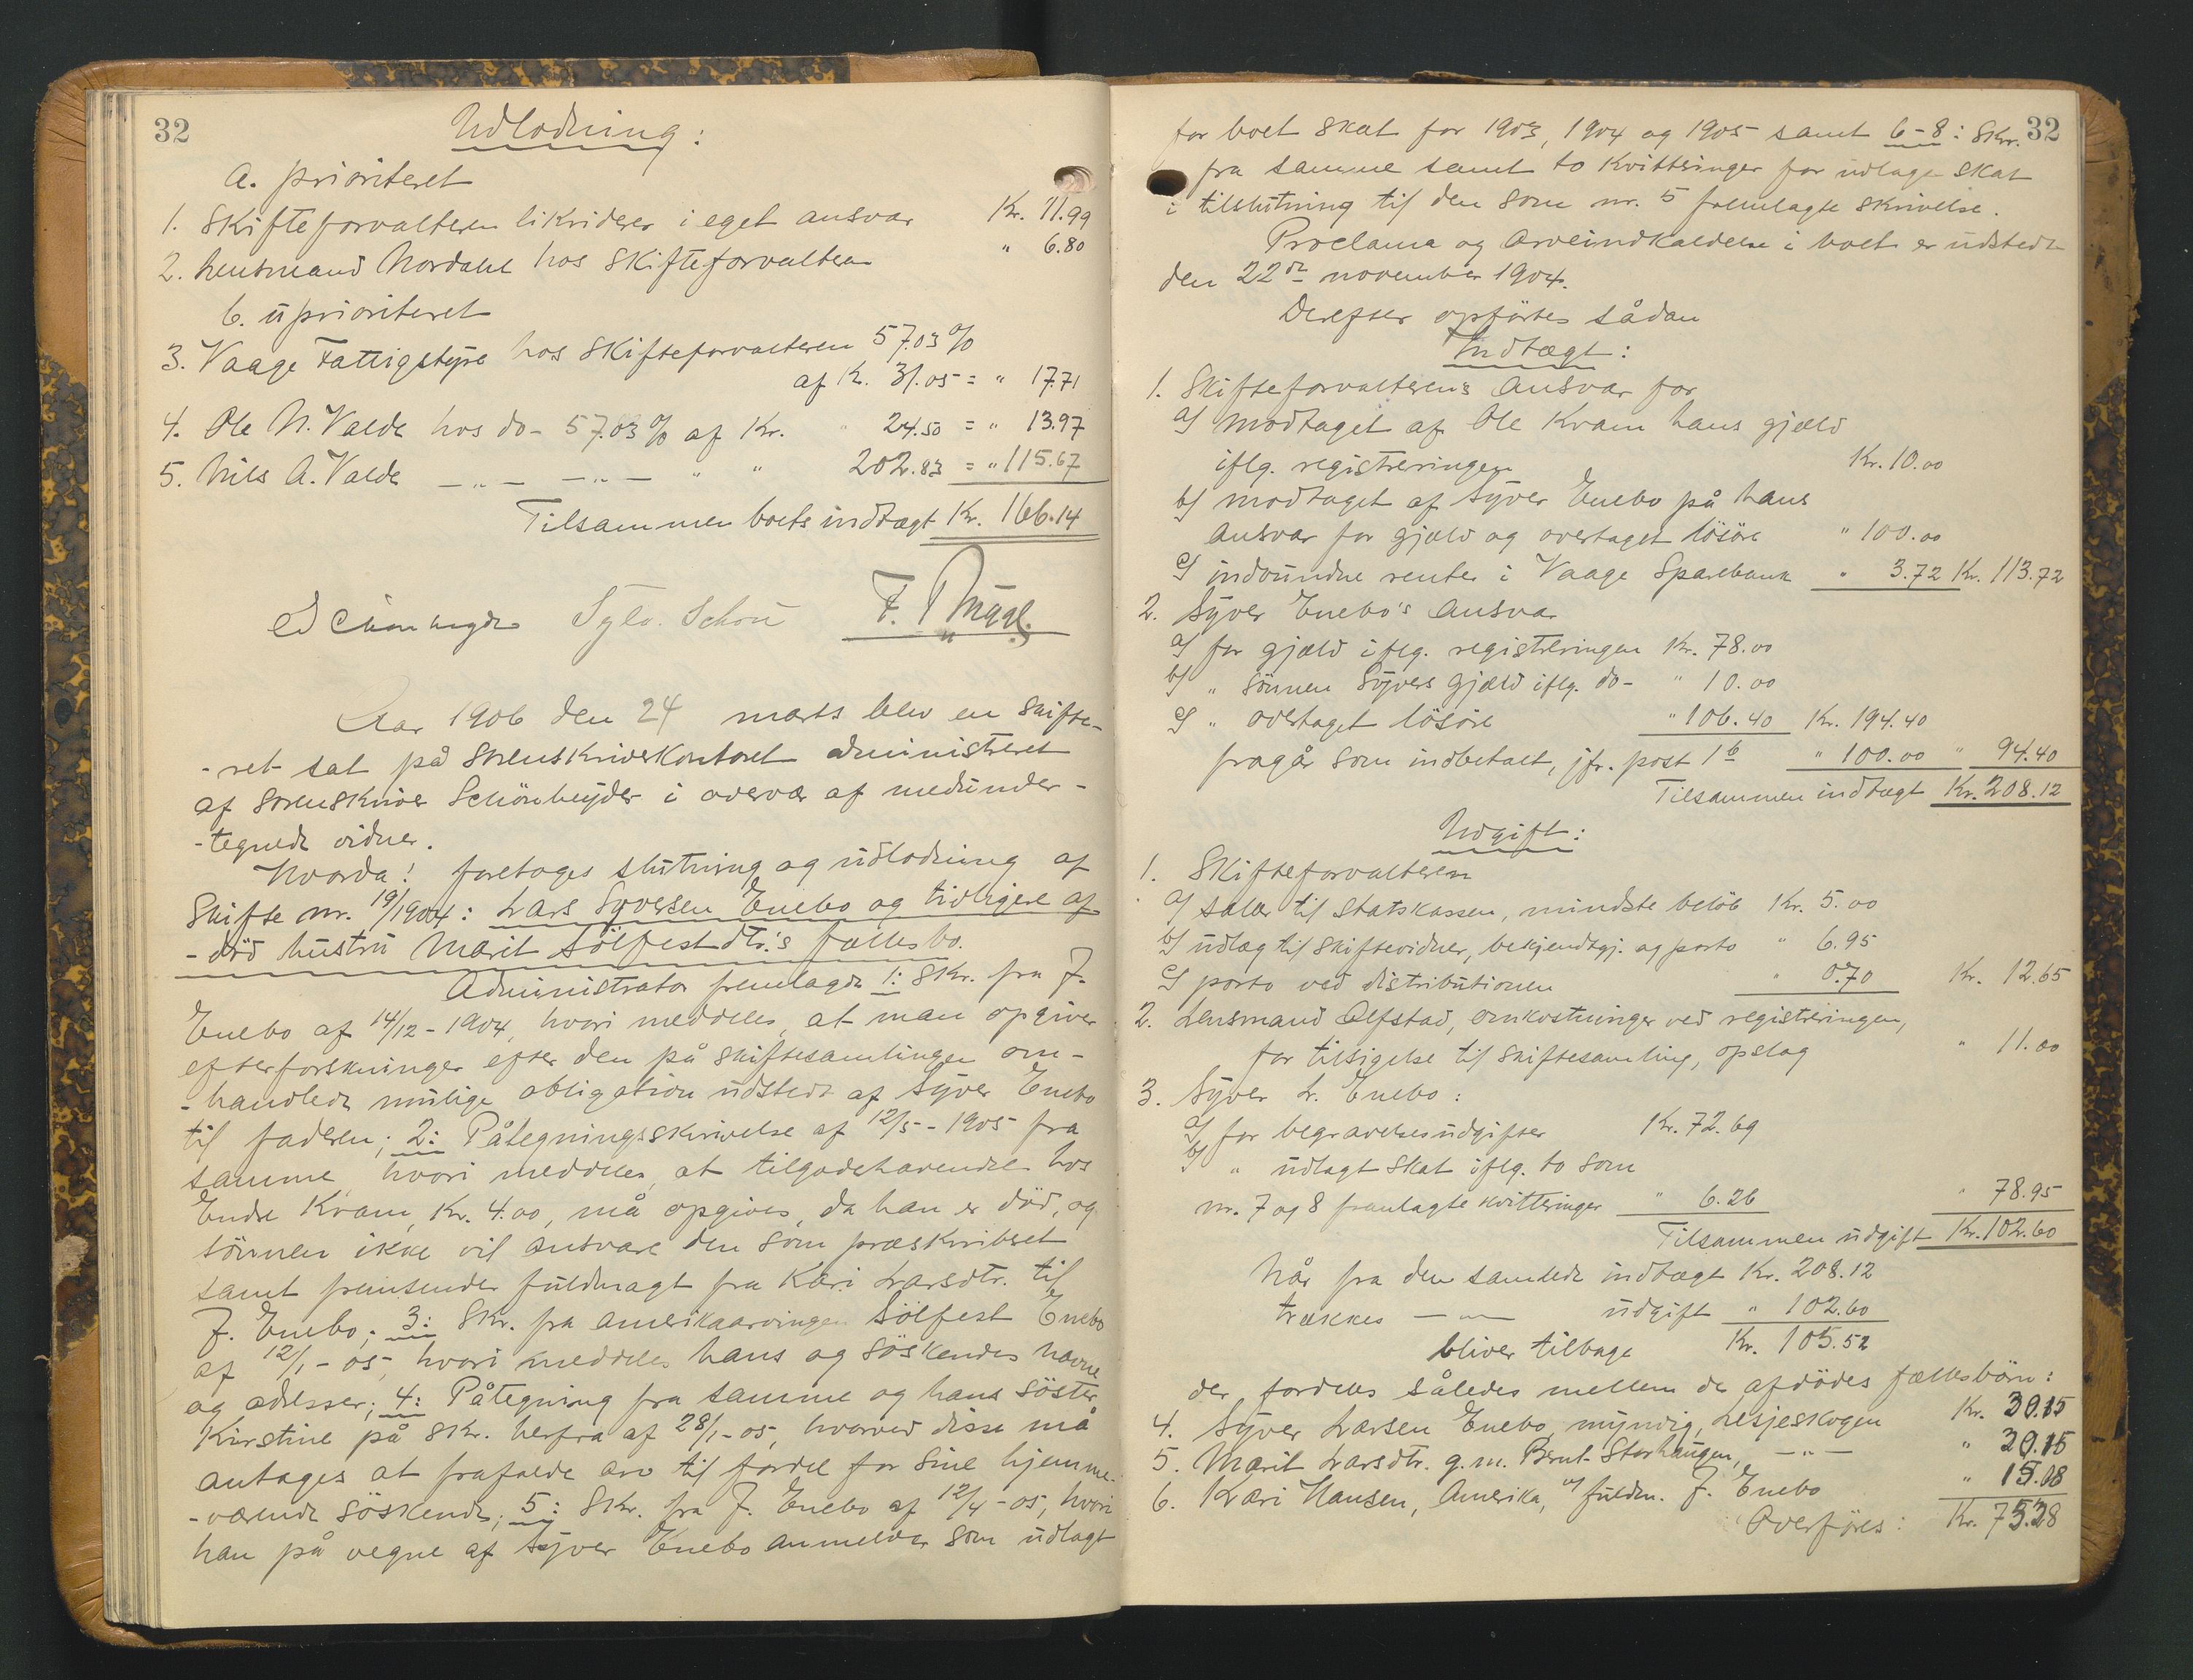 32
Udlodning:
a. prioriteret
1. Skifteforvalteren likviderer i eget ansvar Kr. 11.99
2. Lensmand Nordahl hos Skifteforvalteren " 6.80
b. uprioriteret
3. Vaage Fattigstyre hos Skifteforvalteren 57.03 %
af K. 31.05 = " 17.71
4. Ole N. Valde hos do- 57.03 % af Kr. " 24.50 = " 13.97
5. Nils A. Valde —"— —"— " " 202.83 = " 115.67
Tilsammen boets indtægt Kr. 166.14
Schönheyder
Aar 1906 den 24 marts blev en skifte-
-ret sat på sorenskriverkontoret administreret
af sorenskriver Schönheyder i overvær af medunder-
-tegnede vidner.
Hvorda: foretoges slutning og udlodning af
Skifte nr. 19/1904: Lars Syversen Enebo og tidligere af-
-död hustru Marit Sölfestdtr.'s fællesbo.
Administrator fremlagde 1: Skr. fra J.
Enebo af 14/12-1904, hvori meddeles, at man opgiver
efterforskninger efter den på skiftesamlingen om-
-handlede mulige obligation udstedt af Syver Enebo
til faderen; 2: Påtegningsskrivelse af 12/5-1905 fra
samme, hvori meddeles, at tilgodehavendet hos
Endre Kvam, Kr. 4.00, må opgives, da han er död, og
sönnen ikke vil ansvare den som præskriberet
samt fremsender fuldmagt fra Kari Larsdtr. til
J. Enebo; 3: Skr. fra amerikaarvingen Sölfest Enebo
af 12/1-05, hvori meddeles hans og söskendes navne
og adresser; 4: Påtegning fra samme og hans söster
Kirstine på Skr. herfra af 28/1-05, hvorved disse må
antages at frafalde arv til fordel for sine hjemme-
-værende söskende; 5: Skr. fra J. Enebo af 12/4-05, hvori
han på vegne af Syver Enebo anmelder som udlagt
32
for boet skat for 1903, 1904 og 1905 samt 6-8: Skr.
fra samme samt to kvitteringer for udlagt skat
i tilslutning til den som nr. 5 fremlagte skrivelse.
Proclama og arveindkaldelse i boet er udstedt
den 22de november 1904.
Derefter opförtes sådan
Indtægt:
1. Skifteforvalterens ansvar for
a) modtaget af Ole Kvam hans gjæld
iflg. registreringen Kr. 10.00
b) modtaget af Syver Enebo på hans
ansvar for gjæld og overtaget lösöre " 100.00
c) indvundne renter i Vaage Sparebank " 3.72 Kr. 113.72
2. Syver Enebo's ansvar
a) for gjæld iflg. registreringen Kr. 78.00
b) " sönnen Syvers gjæld iflg. do- " 10.00
c) " overtaget lösöre " 106.40 Kr. 194.40
fragår som indbetalt, jfr. post 1b " 100.00 " 94.40
Tilsammen indtægt Kr. 208.12
Udgift:
1. Skifteforvalteren
a) salær til statskassen, mindste belöb Kr. 5.00
b) udlæg til skiftevidner, bekjendtgj. og porto " 6.95
c) porto ved distributionen " 0.70 Kr. 12.65
2. Lensmand Alfstad, omkostninger ved registreringen,
for tilsigelse til skiftesamling, opslag " 11.00
3. Syver L. Enebo:
a) for begravelsesudgifter Kr. 72.69
b) " udlagt skat iflg. to som
nr. 7 og 8 fremlagte kvitteringer " 6.26 " 78.95
Tilsammen udgift Kr. 102.60
Når fra den samlede indtægt Kr. 208.12
trækkes —"— udgift " 102.60
bliver tilbage Kr. 105.52
der fordeles således mellem de afdödes fællesbörn:
4. Syver Larsen Enebo, myndig, Lesjeskogen Kr. 30.15
5. Marit Larsdtr. g.m. Brnt. Storhaugen, —"— " 30.15
6. Kari Hansen, Amerika, v/ fuldm. J. Enebo " 15.08
Overföres: Kr. 75.38